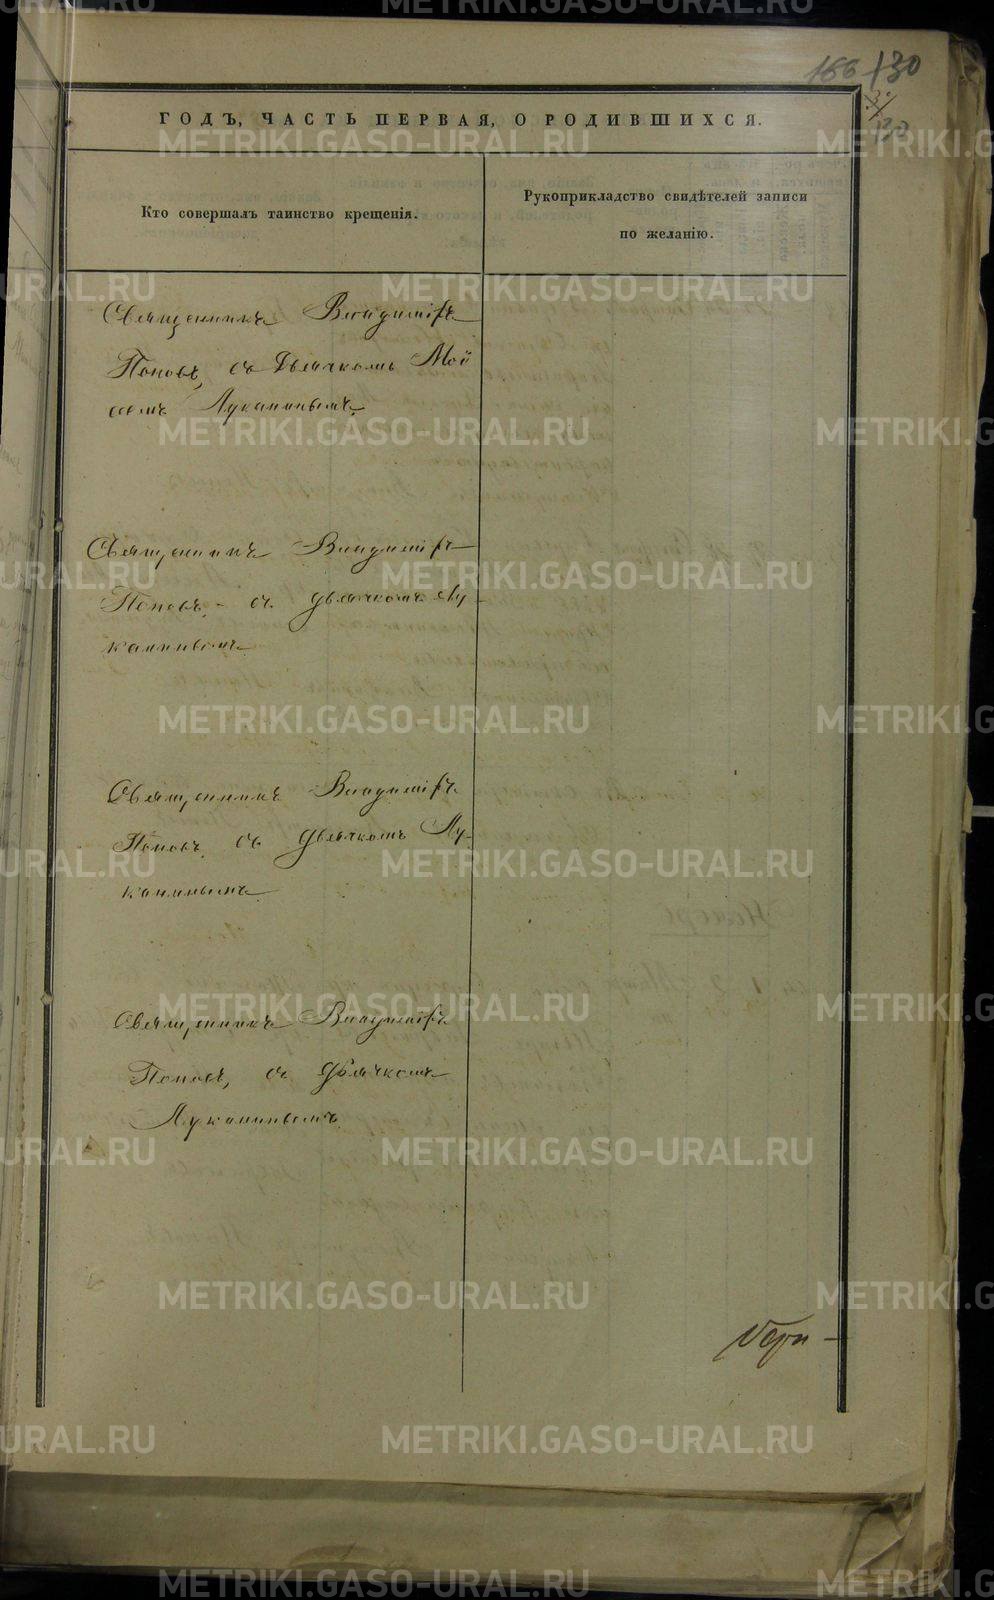 166 130
30
132
ГОДЪ, ЧАСТЬ ПЕРВАЯ, О РОДИВШИХСЯ.
Кто совершалъ таинство крещенія.
Рукоприкладство свидѣтелей записи
по желанію.
Священникъ Владиміръ
Поповъ, съ Дьячкомъ Мои
сеемъ Луканинымъ
Священникъ Владиміръ
Поповъ, съ дьячкомъ Лу-
канинымъ
Священникъ Владиміръ
Поповъ, съ дьячкомъ Лу-
канинымъ
Священникъ Владиміръ
Поповъ, съ дьячкомъ
Луканинымъ
METRIKI.GASO-URAL.RU